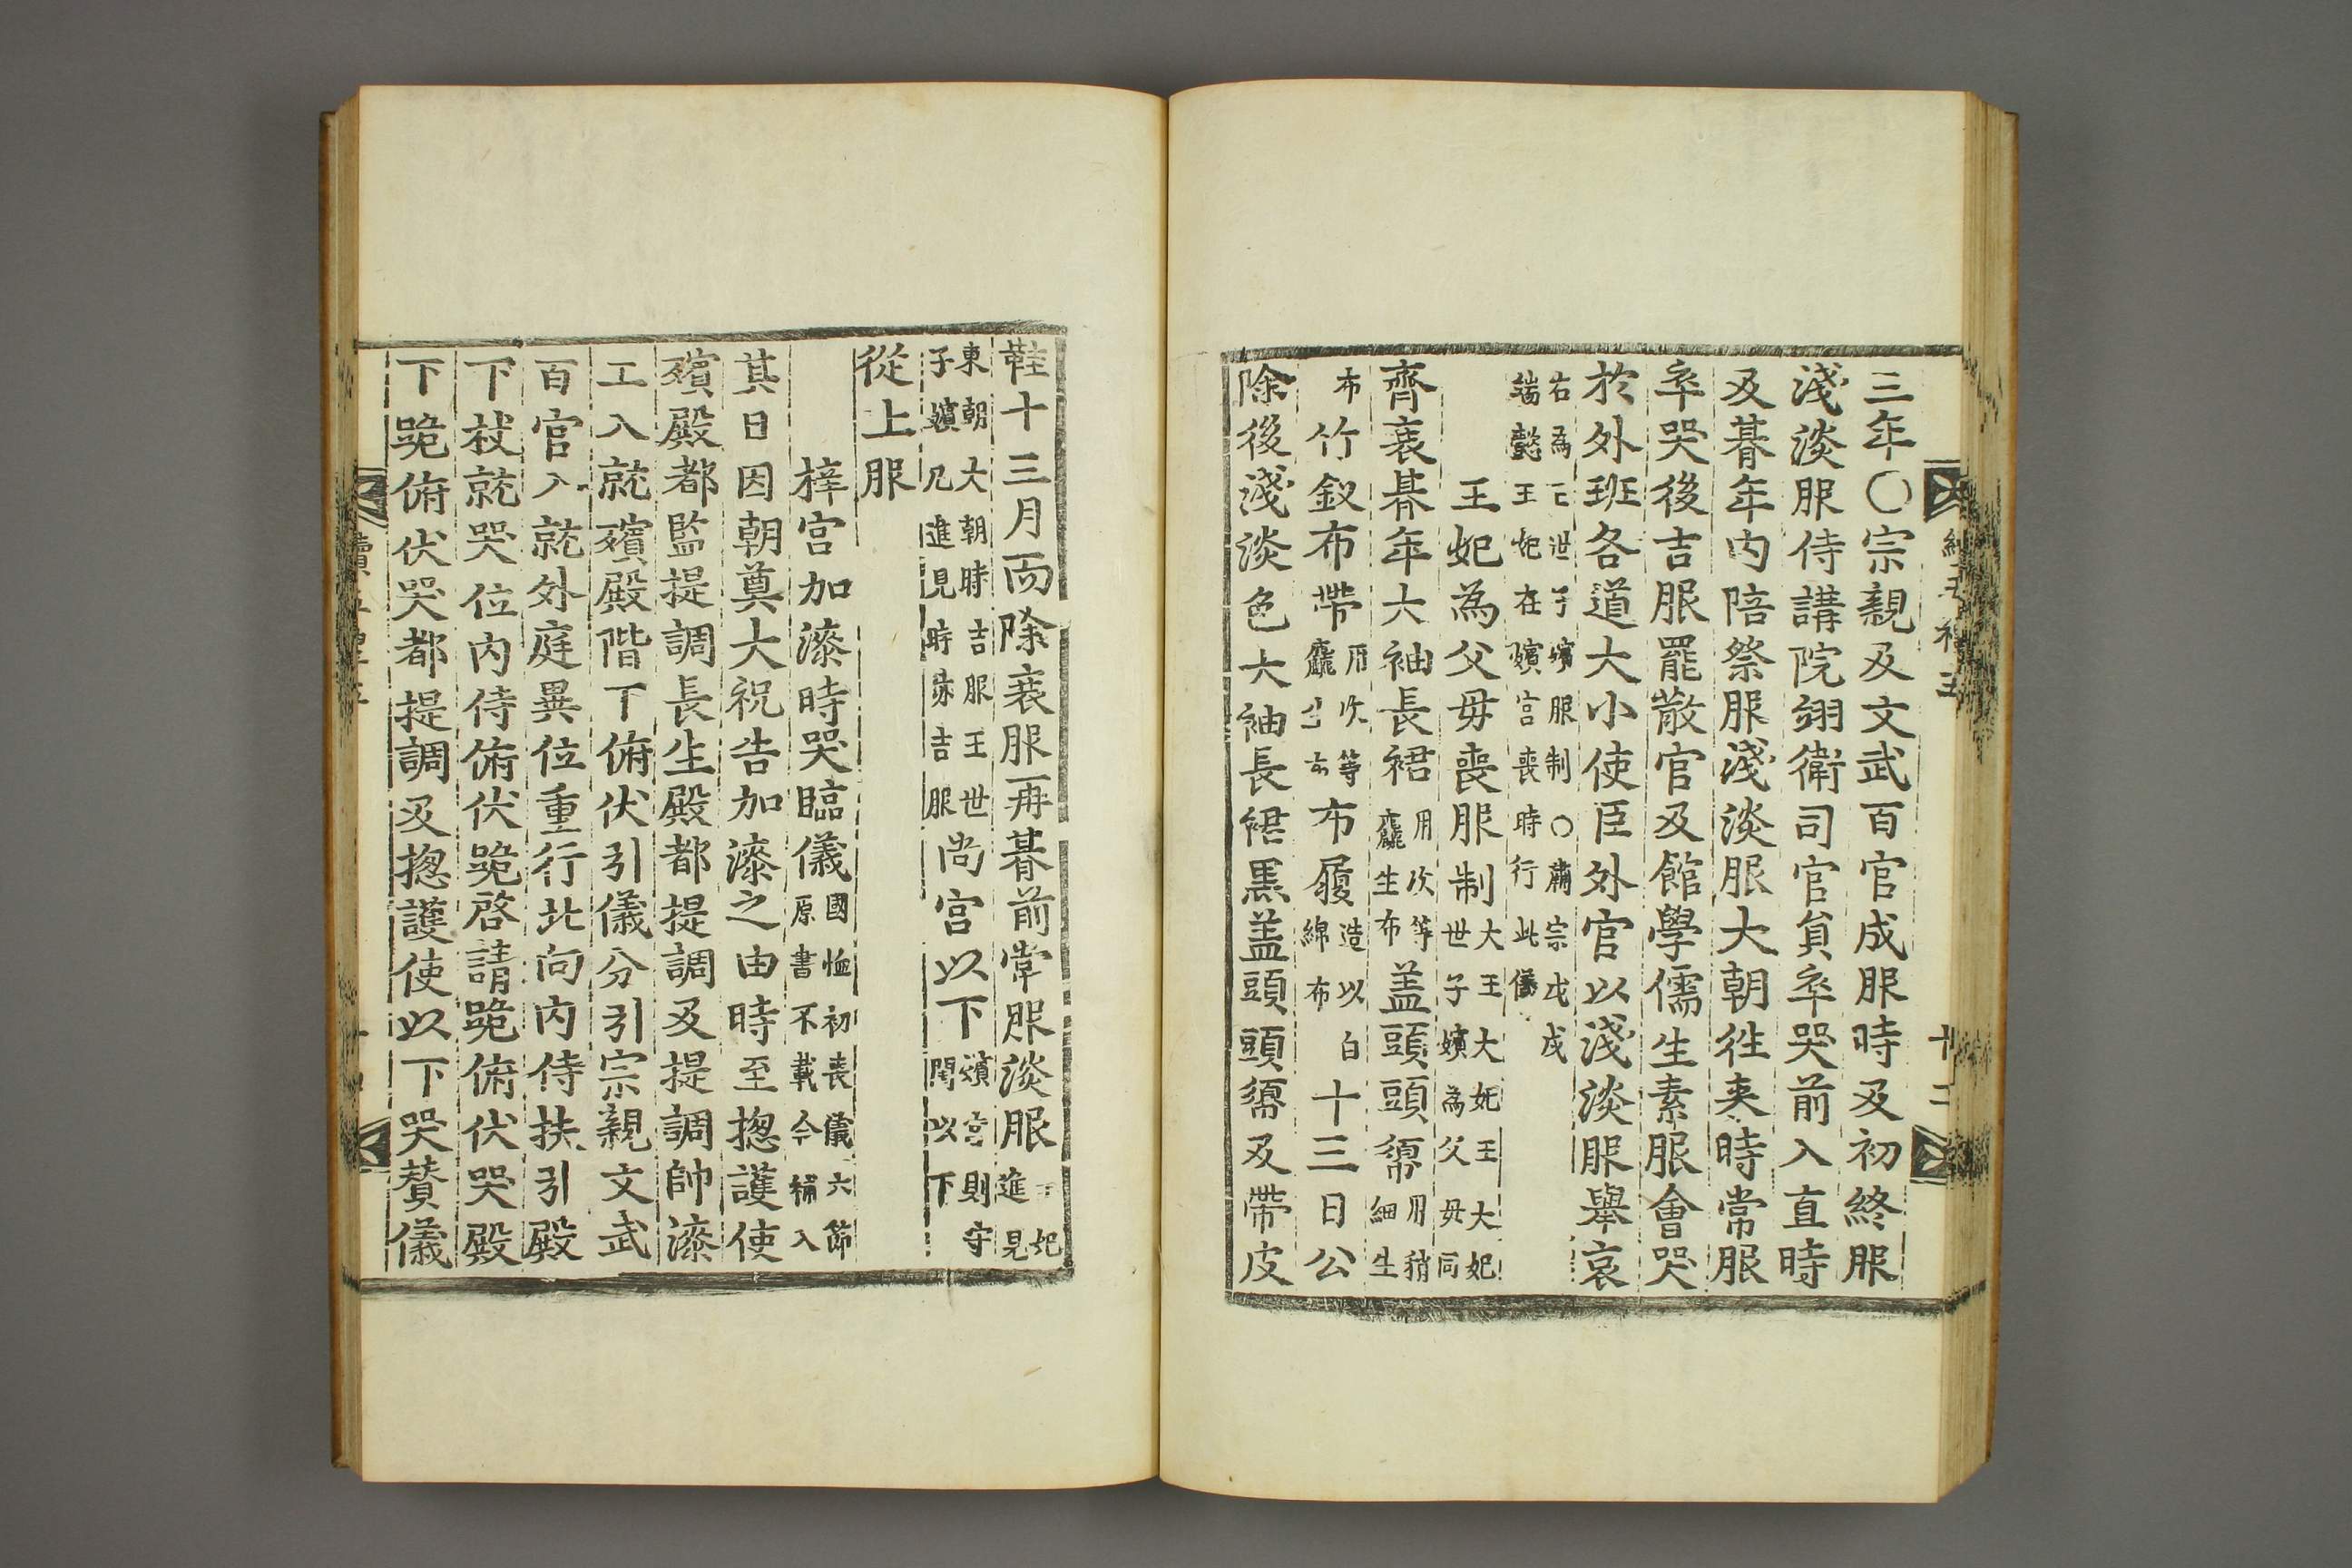 三年○宗親及文武百官成服時及初終服
淺淡服侍講院翊衛司官員卒哭前入直時
及朞年內陪祭服淺淡服大朝徃来時常服
卒哭後吉服罷散官及館學儒生素服會哭
於外班各道大小使臣外官以淺淡服擧哀
右為王世子嬪服制○肅宗戊戌
端懿王妃在嬪宮喪時行此儀
王妃為父母喪服制大王大妃王大妃
世子嬪為父母同
齊衰朞年大袖長裙用次等
麤生布盖頭頭𢄼用稍
細生
布竹釵布帶用次等
麤生布布履造以白
綿布十三日公
除後淺淡色大袖長裙黒盖頭頭𢄼及帶皮
鞋十三月而除衰服再朞前常服淡服王妃
進見
東朝大朝時吉服王世
子嬪凡進見時亦吉服尚宮以下嬪宮則守
閨以下
從上服
梓宮加漆時哭臨儀國恤初喪儀六節
原書不載今補入
其日因朝奠大祝告加漆之由時至揔護使
殯殿都監提調長生殿都提調及提調帥漆
工入就殯殿階下俯伏引儀分引宗親文武
百官入就外庭異位重行北向內侍扶引殿
下杖就哭位內侍俯伏跪啓請跪俯伏哭殿
下跪俯伏哭都提調及揔護使以下哭贊儀